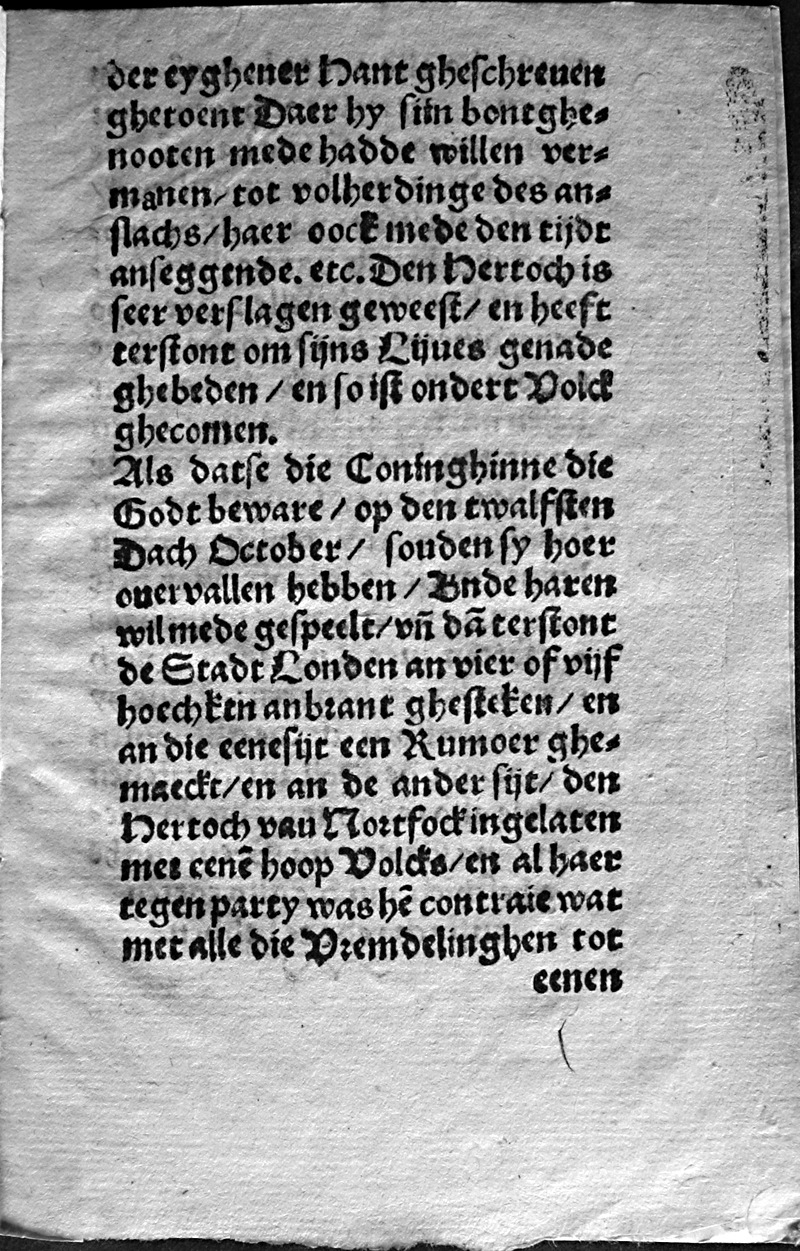 der eyghener Hant gheschreuen
ghetoent Daer hy sijn bontghe-
nooten mede hadde willen ver-
manen/ tot volherdinge des an-
slachs/ haer oock mede den tijdt
anseggende. etc. Den Hertoch is
seer verslagen geweest/ en heeft
terstont om sijns Lijues genade
ghebeden / en so ist ondert Volck
ghecomen.
Als datse die Coninghinne die
Godt beware / op den twalfsten
Dach October / souden sy hoer
ouervallen hebben / Vnde haren
wil mede gespeelt/ vn̄ dā terstont
de Stadt Londen an vier of vijf
hoechken anbrant ghesteken/ en
an die eene sijt een Rumoer ghe-
maeckt/ en an de ander sijt/ den
Hertoch van Nortfock ingelaten
met eenē hoop Volcks/ en al haer
tegen party was hē contraie wat
met alle die Vremdelinghen tot
eenen